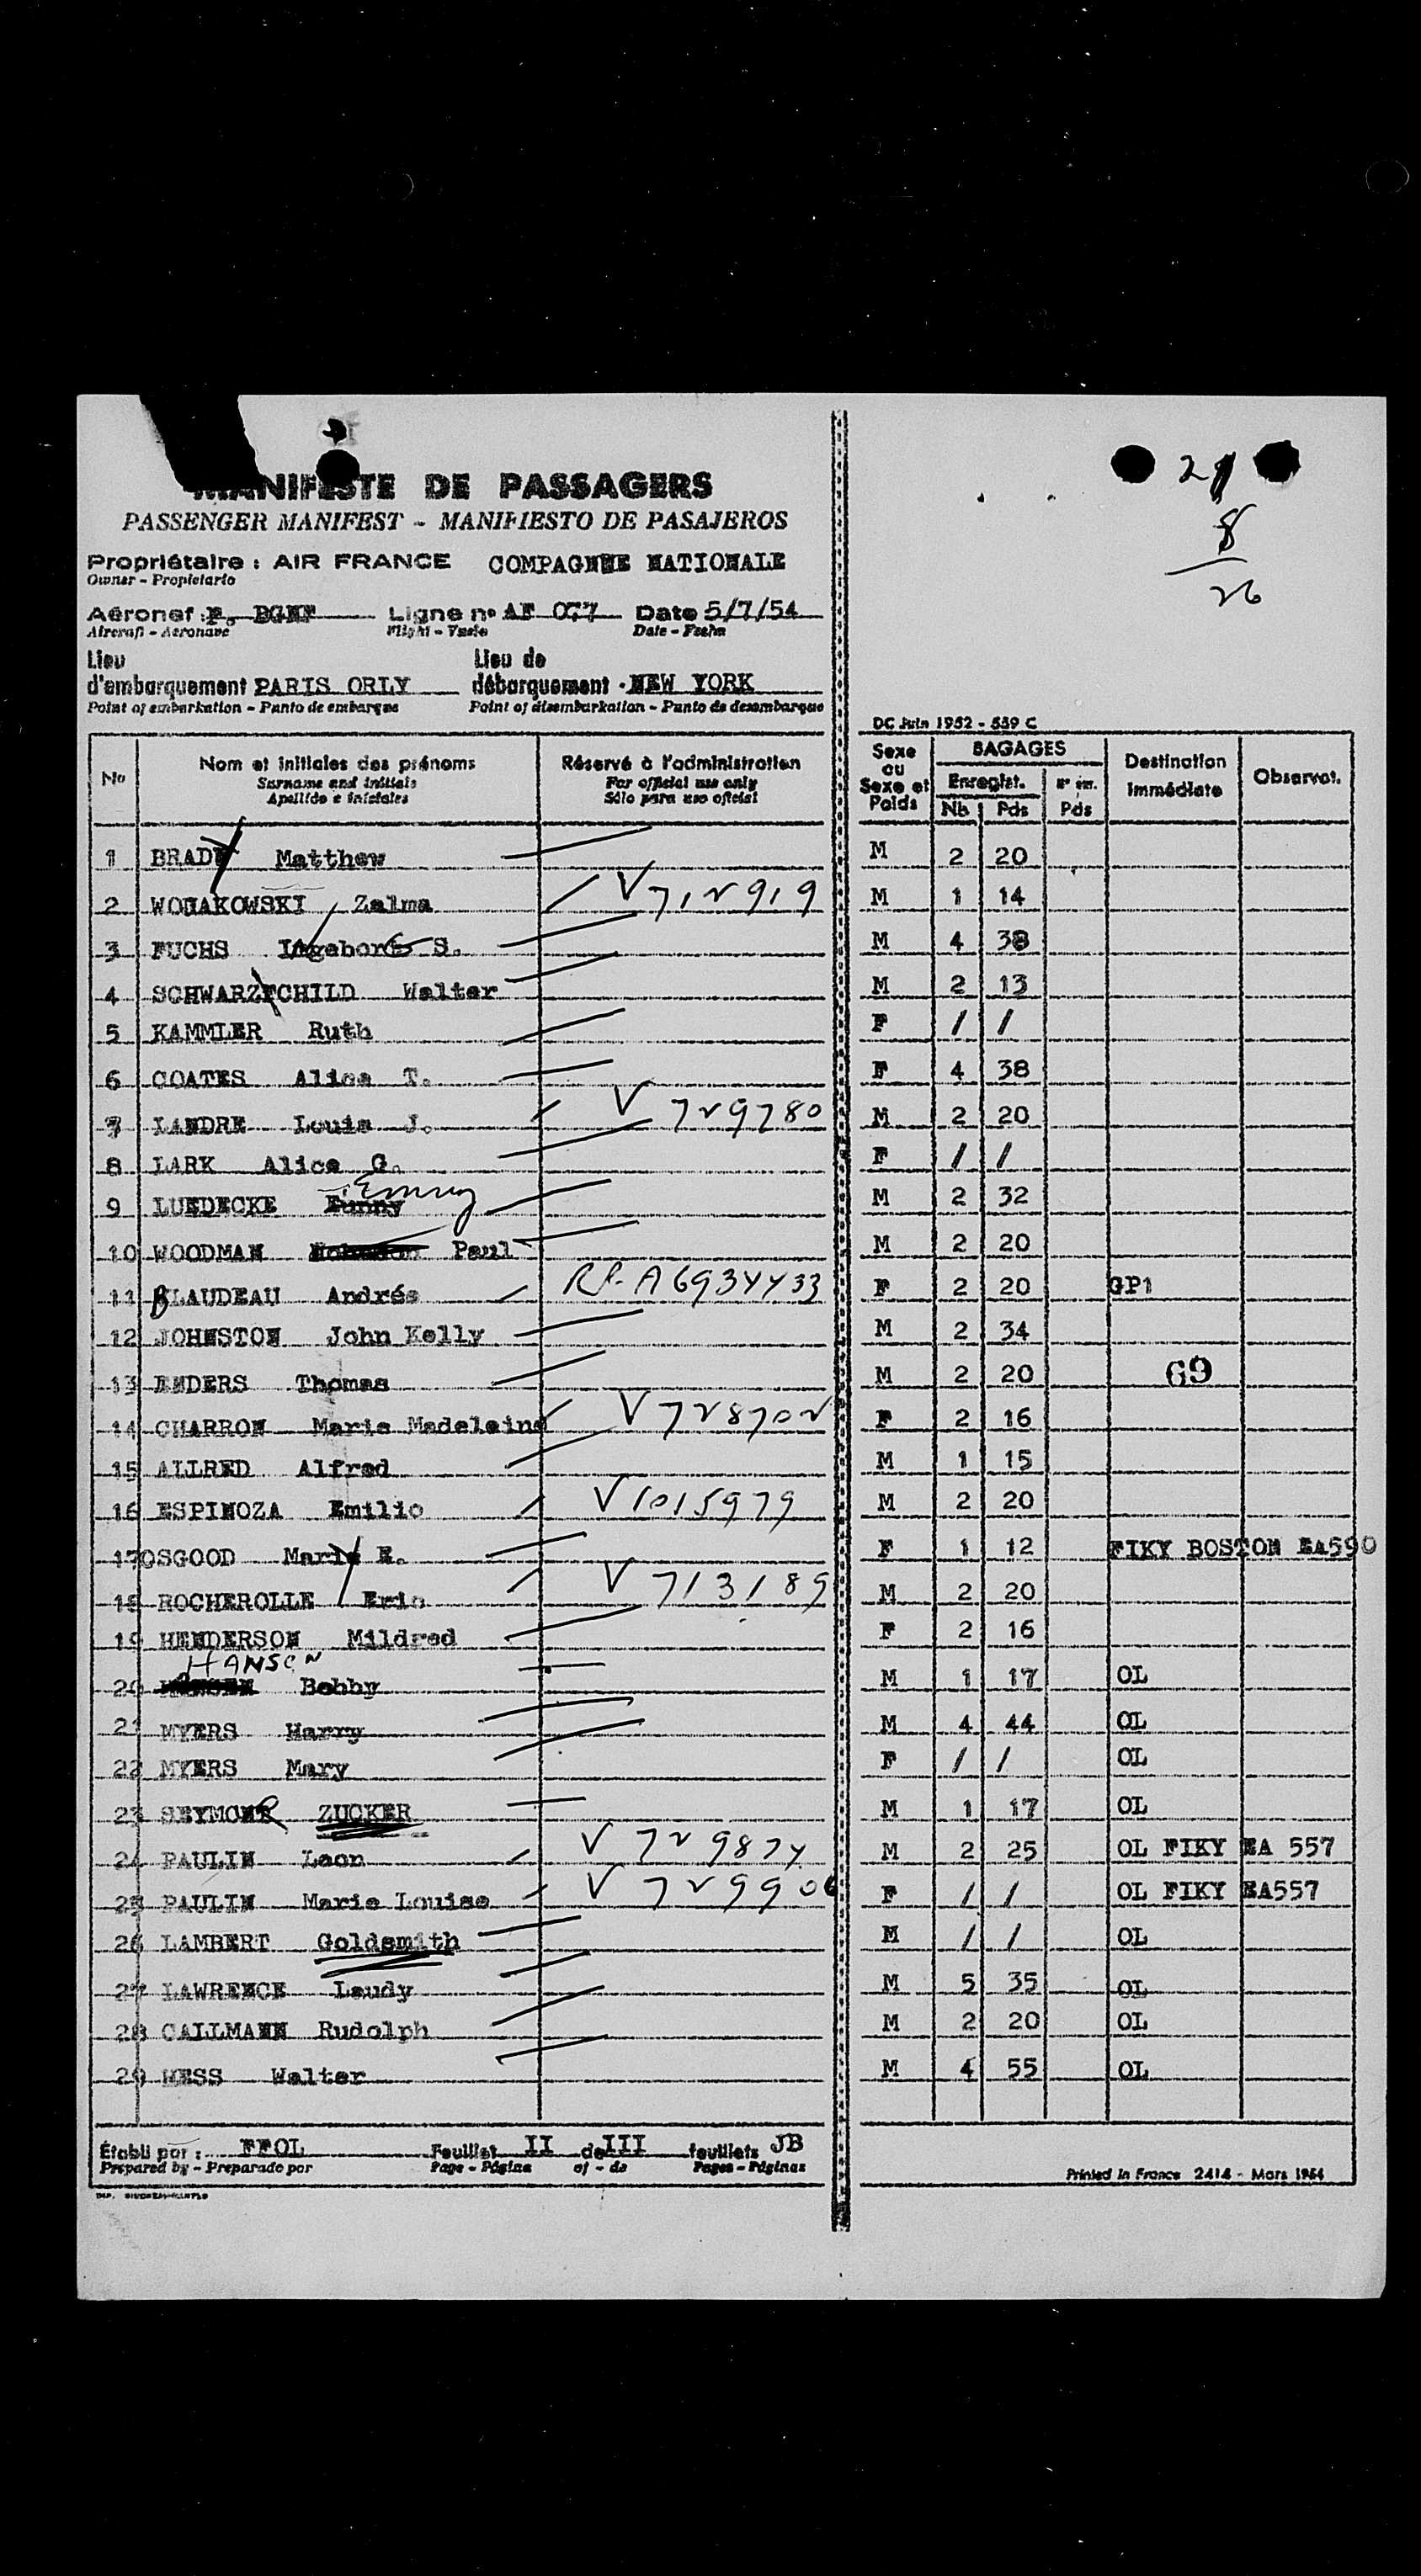 MANIFESTE DE PASSAGERS
PASSENGER MANIFEST - MANIFIESTO DE PASAJEROS
Propriétaire : AIR FRANCE COMPAGNIE NATIONALE
Owner - Propietario
Aéronef : F. BGNF Ligne n° AF 077 Date 5/7/54
Aircraft - Aeronave Flight - Vuelo Date - Fecha
Lieu d'embarquement PARIS ORLY Lieu de débarquement NEW YORK
Point of embarkation - Punto de embarque Point of disembarkation - Punto de desembarque
8
26
DC Juin 1952 - 539 C
No Nom et initiales des prénoms Réservé à l'administration Sexe ou Sexe et Poids BAGAGES Destination immédiate Observat.
Surname and initials For official use only Enregist. Nb Pds Pds
Apellido e iniciales Sólo para uso oficial
1 BRADY Matthew M 2 20
2 WODAKOWSKI Zalma V 712919 M 1 14
3 FUCHS Ingeborg S. M 4 38
4 SCHWARZSCHILD Walter M 2 13
5 KAMMLER Ruth F / /
6 COATES Alice T. F 4 38
7 LANDRE Louis J. V 729780 M 2 20
8 LARK Alice G. F / /
9 LUEDECKE Emmy M 2 32
10 WOODMAN Paul M 2 20
11 BLAUDEAU Andrés RP. A6934433 F 2 20 GP1
12 JOHNSTON John Kelly M 2 34
13 ENDERS Thomas M 2 20 69
14 CHARRON Marie Madeleine V 728702 F 2 16
15 ALLRED Alfred M 1 15
16 ESPINOZA Emilio V 1015979 M 2 20
17 OSGOOD Mary E. F 1 12 FIKY BOSTON EA590
18 ROCHEROLLE Eric V 713189 M 2 20
19 HENDERSON Mildred F 2 16
20 HANSEN Bobby M 1 17 OL
21 MYERS Harry M 4 44 OL
22 MYERS Mary F / / OL
23 SEYMOUR ZUCKER M 1 17 OL
24 PAULIN Leon V 729874 M 2 25 OL FIKY EA 557
25 PAULIN Marie Louise V 729906 F / / OL FIKY EA557
26 LAMBERT Goldsmith M / / OL
27 LAWRENCE Laudy M 5 35 OL
28 CALLMANN Rudolph M 2 20 OL
29 HESS Walter M 4 55 OL
Établi par : FFOL Feuillet II de III feuillets JB
Prepared by - Preparado por Page - Página of - de Pages - Páginas
Printed in France 2414 - Mars 1954